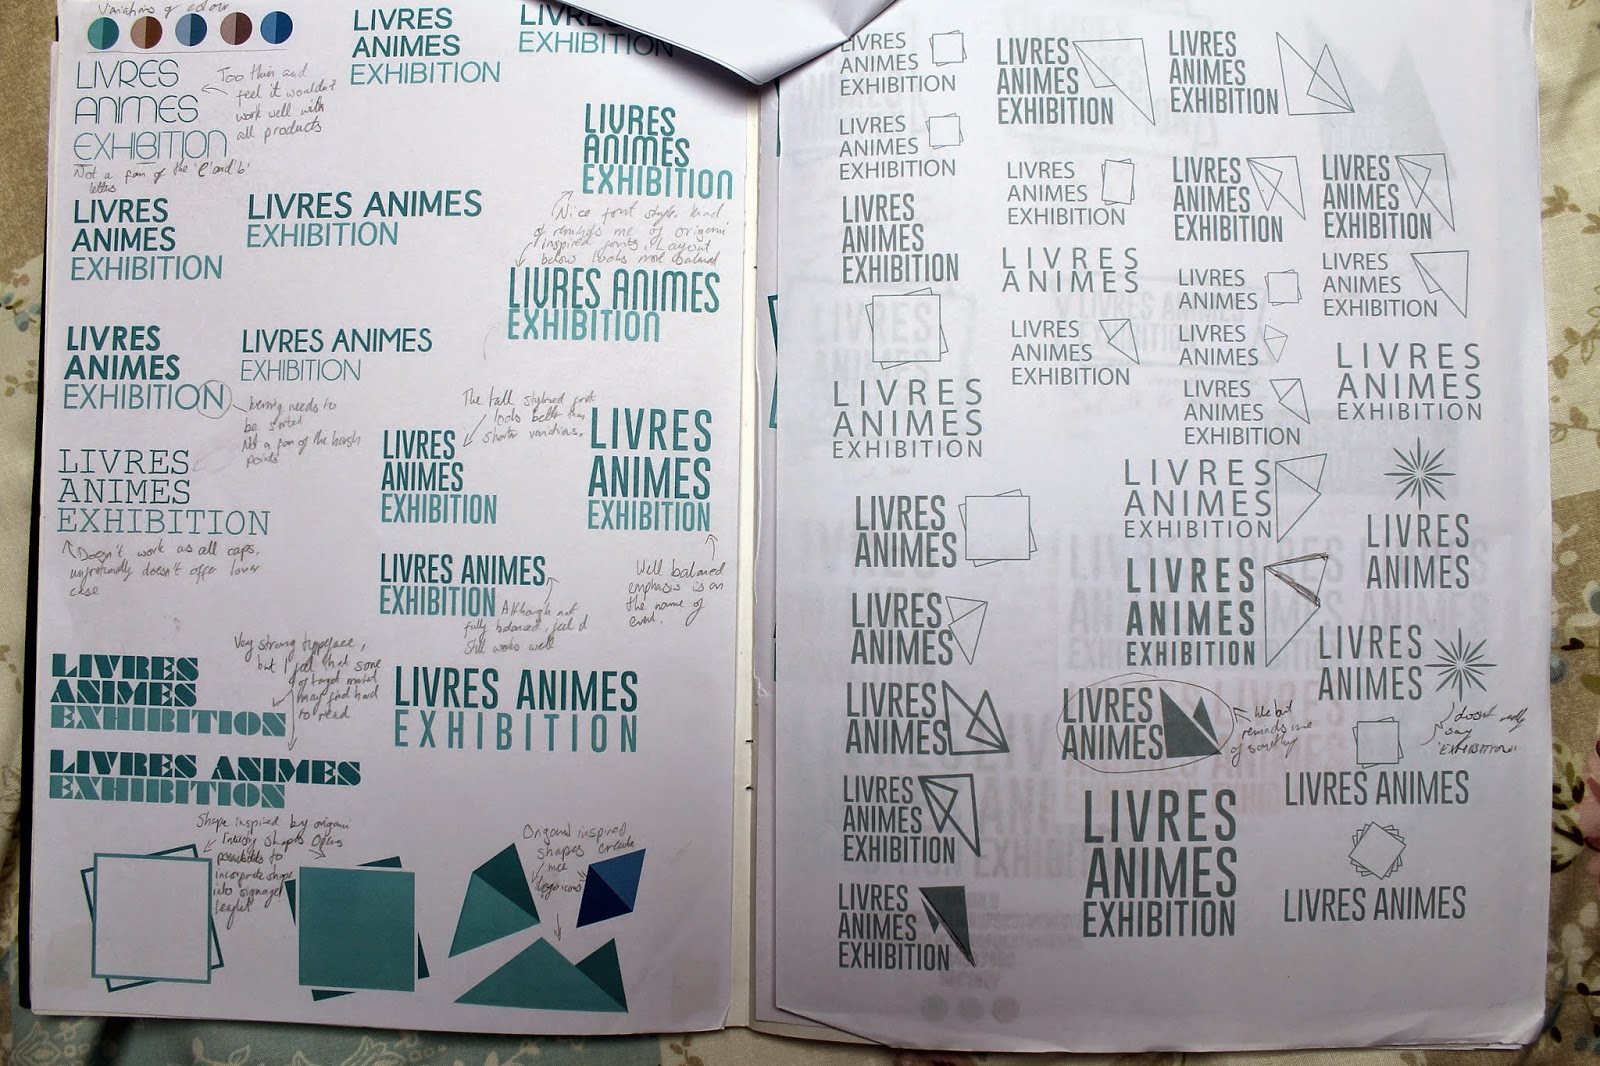 Variations of colour
LIVRES
ANIMES
EXHIBITION
Too thin and
feel it wouldn't
work well with
all products
Not a fan of the 'e' and 'b'
letters
LIVRES
ANIMES
EXHIBITION
LIVRES
EXHIBITION
LIVRES
ANIMES
EXHIBITION
Nice font style. Kind
of reminds me of origami
inspired fonts. Layout
below looks more balanced
LIVRES ANIMES
EXHIBITION
LIVRES
ANIMES
EXHIBITION
LIVRES ANIMES
EXHIBITION
LIVRES
ANIMES
EXHIBITION
kerning needs to
be sorted
Not a fan of the harsh
points
LIVRES ANIMES
EXHIBITION
LIVRES
ANIMES
EXHIBITION
Doesn't work as all caps,
unfortunatly doesn't offer lower
case
The tall stylised font
looks better than
shorter variations.
LIVRES
ANIMES
EXHIBITION
LIVRES
ANIMES
EXHIBITION
Well balanced
emphasis is on
the name of
event.
LIVRES ANIMES
EXHIBITION
Although not
fully balanced, feel it
still works well
Very strong typeface,
but I feel that some
of target market
may find hard
to read
LIVRES
ANIMES
EXHIBITION
LIVRES ANIMES
EXHIBITION
LIVRES ANIMES
EXHIBITION
Shape inspired by origami
shapes opens
possibilities to
incorporate shape
into signage/
leaflet
Origami inspired
shapes create
nice
logo icons
LIVRES
ANIMES
EXHIBITION
LIVRES
ANIMES
EXHIBITION
LIVRES
ANIMES
EXHIBITION
LIVRES
ANIMES
EXHIBITION
LIVRES
ANIMES
EXHIBITION
LIVRES
ANIMES
EXHIBITION
LIVRES
ANIMES
EXHIBITION
LIVRES
ANIMES
EXHIBITION
LIVRES
ANIMES
LIVRES
ANIMES
LIVRES
ANIMES
EXHIBITION
LIVRES
ANIMES
EXHIBITION
LIVRES
ANIMES
LIVRES
ANIMES
EXHIBITION
LIVRES
ANIMES
EXHIBITION
LIVRES
ANIMES
EXHIBITION
LIVRES
ANIMES
EXHIBITION
LIVRES
ANIMES
LIVRES
ANIMES
LIVRES
ANIMES
EXHIBITION
LIVRES
ANIMES
LIVRES
ANIMES
LIVRES
ANIMES
LIVRES
ANIMES
reminds me
of something
doesnt really
say
'EXHIBITION'
LIVRES ANIMES
LIVRES
ANIMES
EXHIBITION
LIVRES
ANIMES
EXHIBITION
LIVRES
ANIMES
EXHIBITION
LIVRES ANIMES